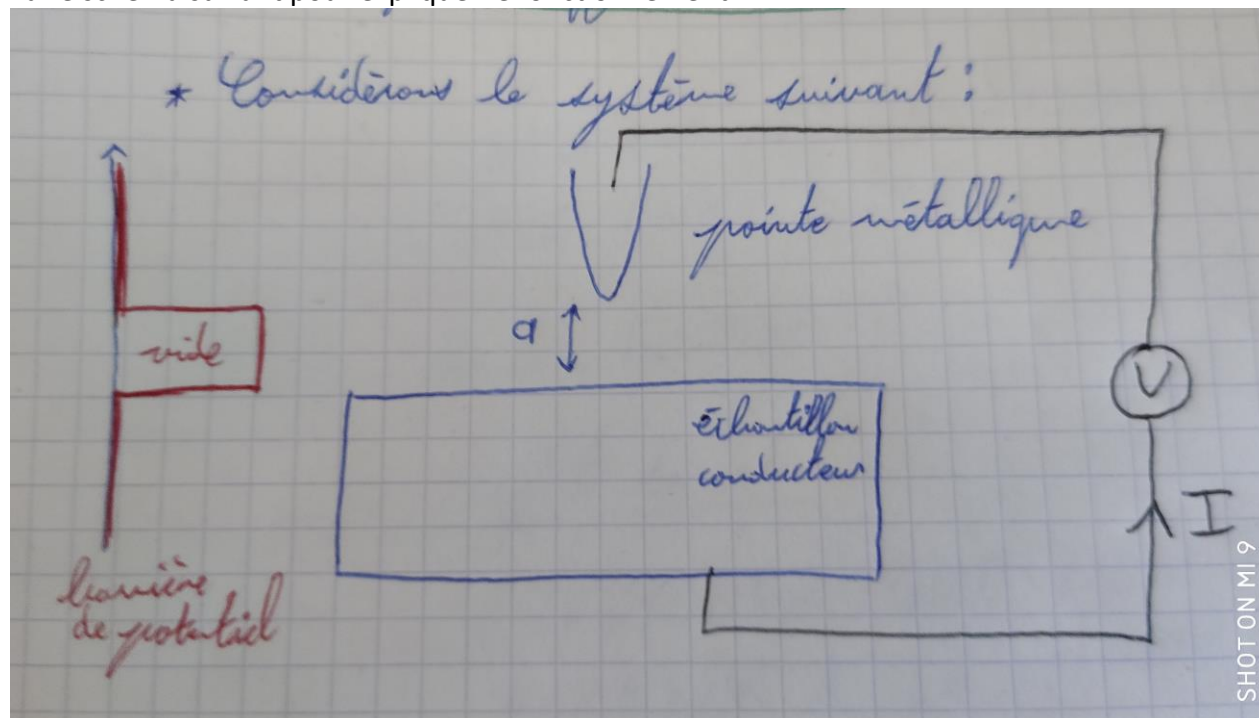 * Considérons le système suivant :
pointe métallique
a
vide
V
échantillon
conducteur
I
barrière
de potentiel
SHOT ON MI 9